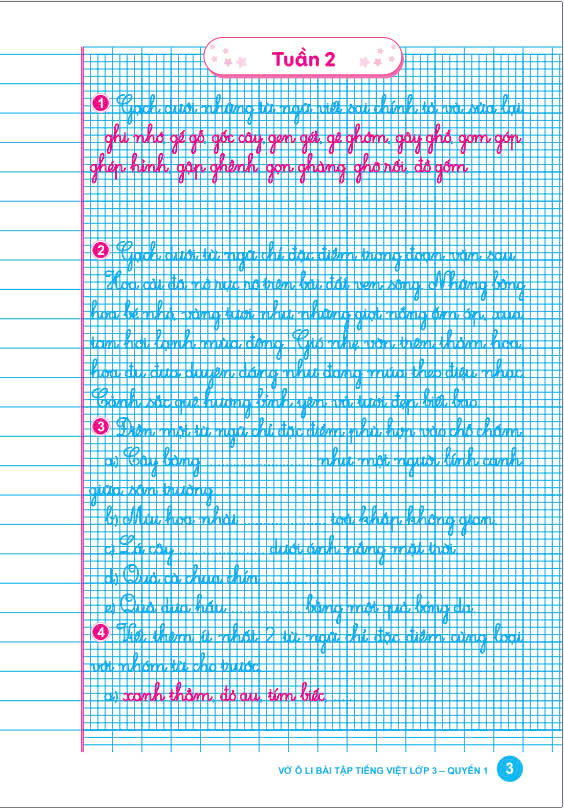 Tuần 2
1 Gạch dưới những từ ngữ viết sai chính tả và sửa lại
ghi nhớ, gế gỗ, gốc cây, gen gét, gê ghớm, gây ghổ, gom góp
ghép hình, gập ghềnh, gọn ghàng, ghồ rối, đồ gốm
2 Gạch dưới từ ngữ chỉ đặc điểm trong đoạn văn sau
Hoa cải đã nở rực rỡ trên bãi đất ven sông. Những bông
hoa bé nhỏ, vàng tươi như những giọt nắng ấm áp, xua
tan hơi lạnh mùa đông. Gió nhẹ vờn trên thảm hoa,
hoa đu đưa duyên dáng như đang múa theo điệu nhạc.
Cảnh sắc quê hương bình yên và tươi đẹp biết bao.
3 Điền một từ ngữ chỉ đặc điểm phù hợp vào chỗ chấm
a) Cây bàng .................... như một người lính canh
giữa sân trường.
b) Mùi hoa nhài .................... toả khắp không gian.
c) Lá cây .................... dưới ánh nắng mặt trời.
d) Quả cà chua chín ....................
e) Quả dưa hấu ................ bằng một quả bóng da.
4 Viết thêm ít nhất 2 từ ngữ chỉ đặc điểm cùng loại
với nhóm từ cho trước
a) xanh thẳm, đỏ au, tím biếc, ....
VỞ Ô LI BÀI TẬP TIẾNG VIỆT LỚP 3 – QUYỂN 1 3